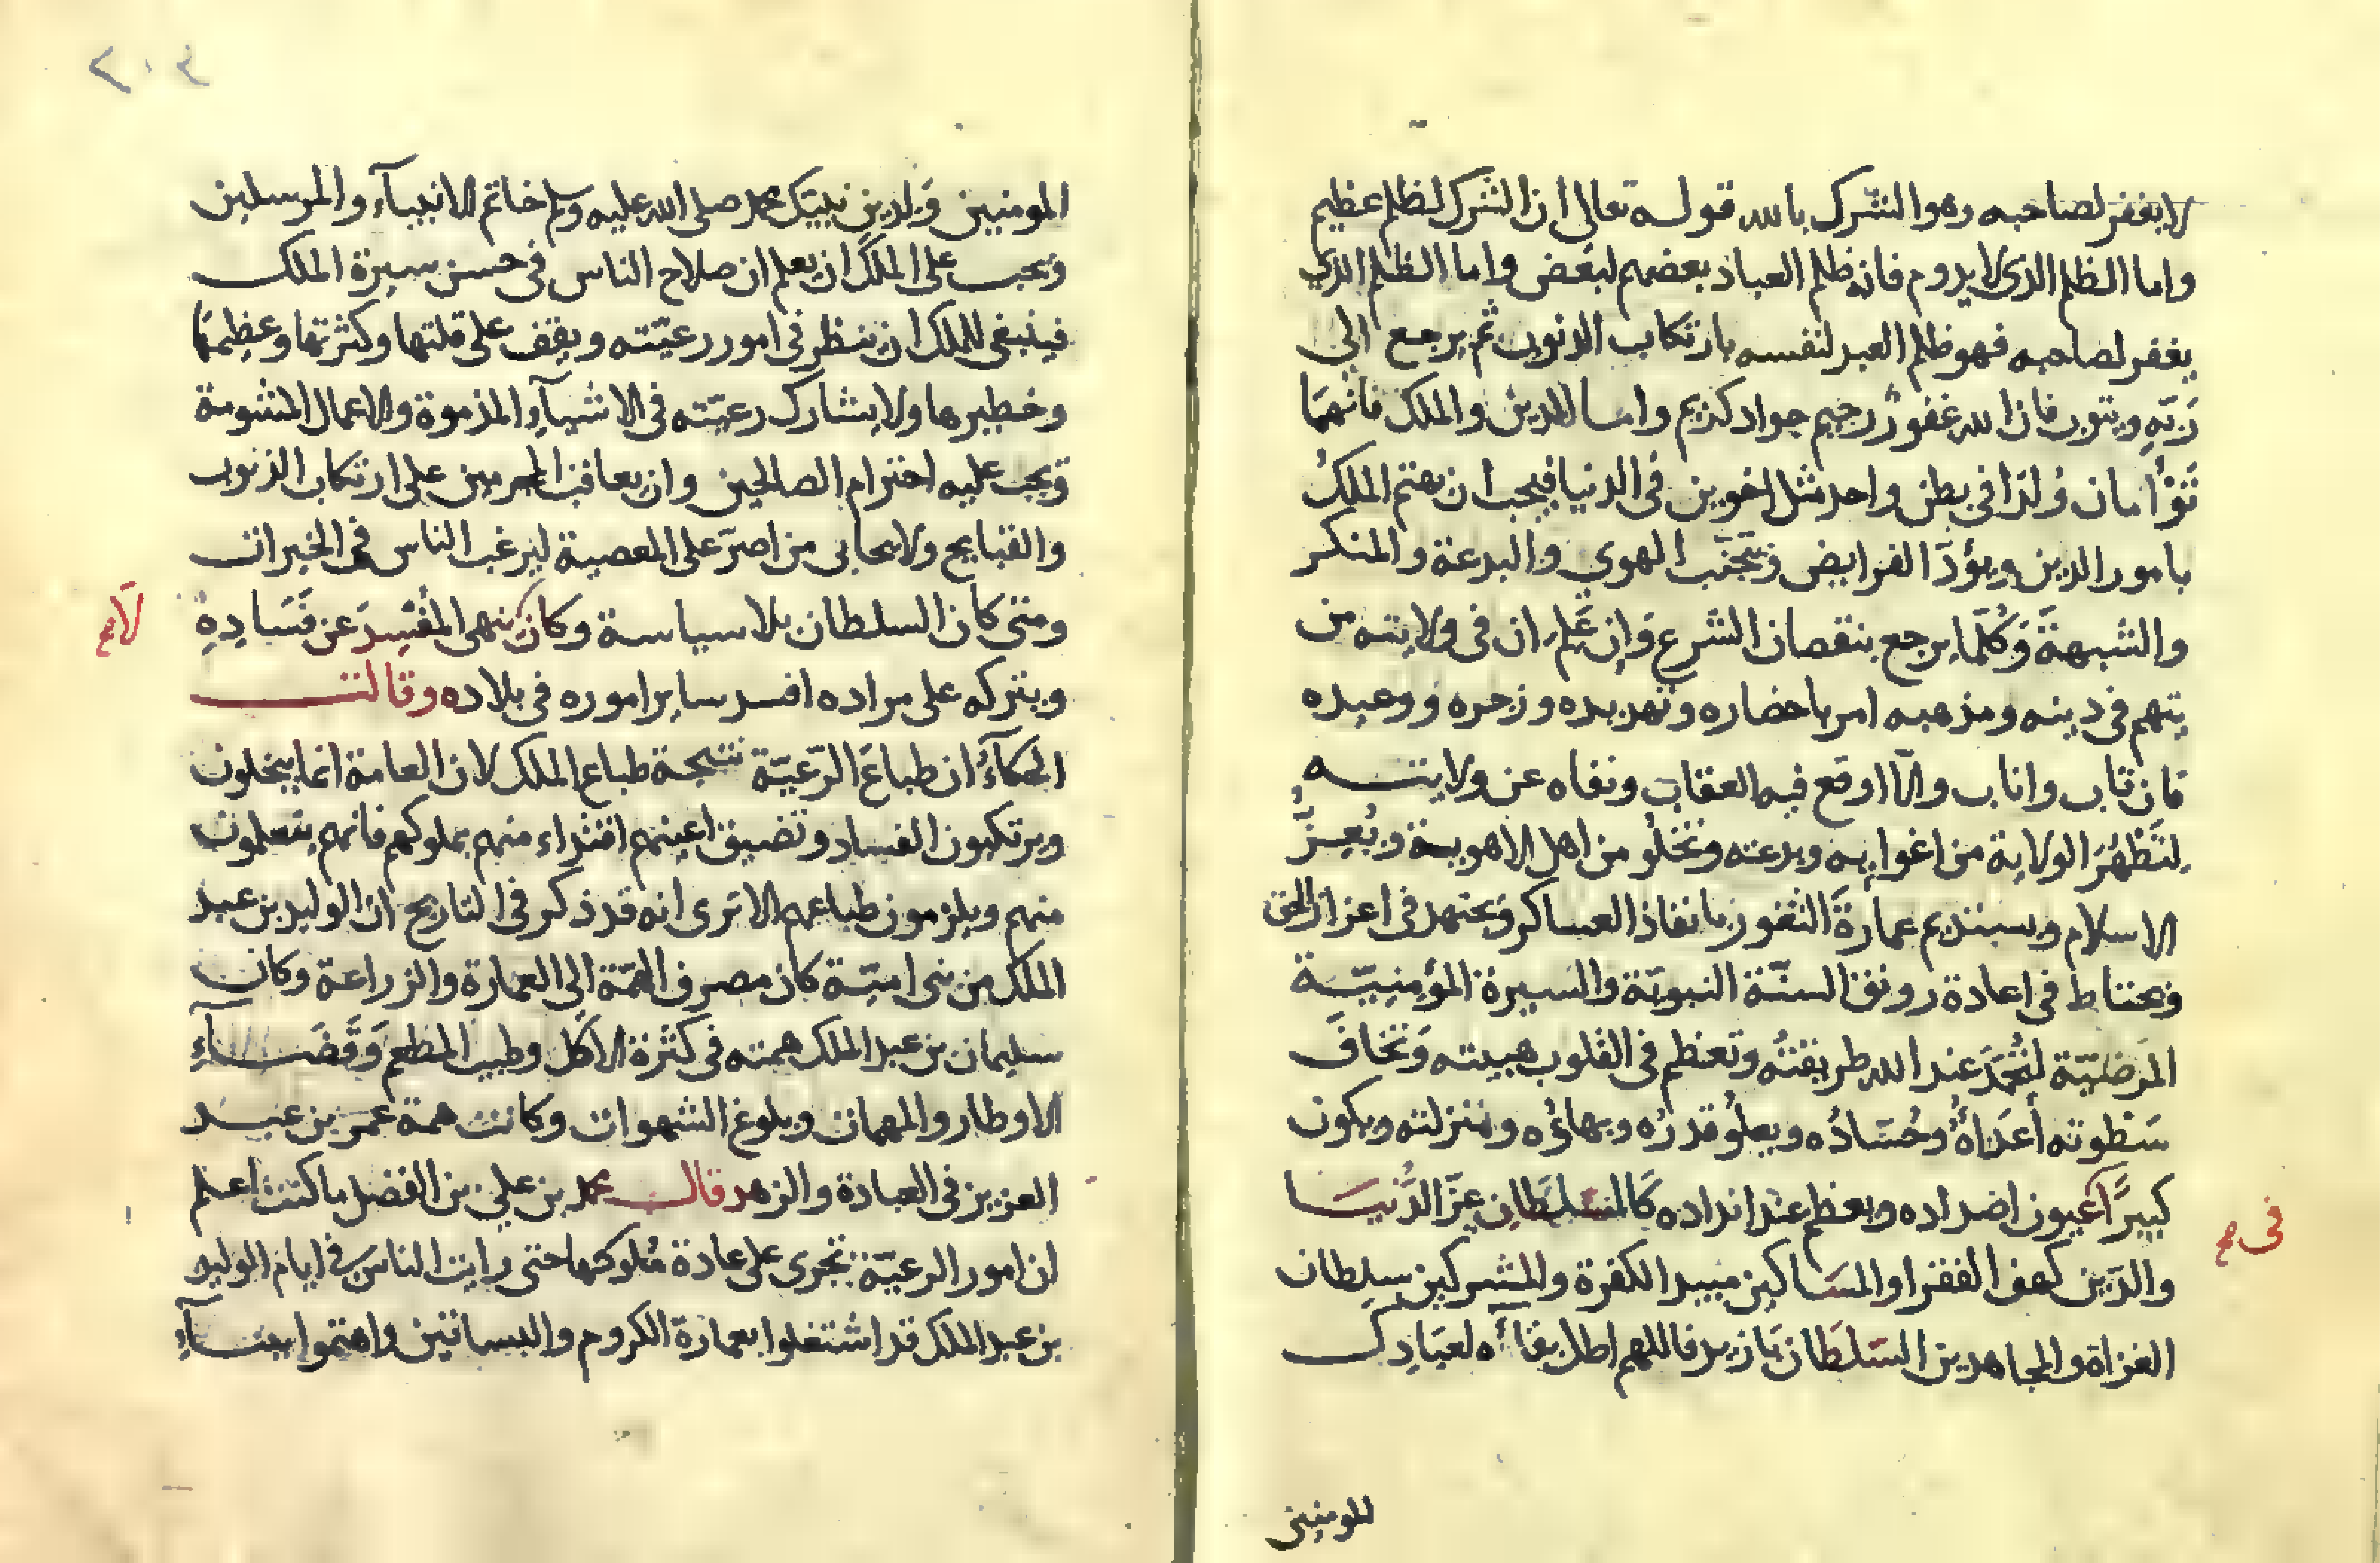 لا يغفر لصاحبه وهو الشرك بالله قوله تعالى ان الشرك لظلم عظيم
واما الظلم الذي لا يدوم فانه ظلم العباد بعضهم لبعض واما الظلم الذي
يغفر لصاحبه فهو ظلم العبد لنفسه بارتكاب الذنوب ثم يرجع الى
رَبّهِ ويتوب فان الله غفورٌ رحيم جواد كريم واما الدين والملك فانهمَا
تَوْأمان وُلدَا في بطن واحد مثل اخوين في الدنيا فيجب ان يهتم الملكُ
بامور الدين ويؤدّ الفرايض ويَتجنّب الهوي والبدعة والمنكر
والشبهةَ وَكُلّما يرجع بنقصان الشرع وَاِن عَلم ان في ولايته من
يتهم في دينه ومذهبه امر باحضاره وتهديده وزجره ووعيده
فان تاب واناب والّا اوقع فيه العقاب ونفاه عن ولايتــه
لتَطْهُرَ الولاية من اغوايه وبدعته وتخلُو من اهل الاهوية ويُعِزُّ
الاسلام ويستديم عمارةَ الثغور بانفاذ العساكر ويجتهد في اعزاز الحق
ويحتاط في اعادة رونق السنّة النبويّة والسيرة المؤمنيّـة
المرَضيّة لتُحمَدَ عند الله طريقتُه وتعظم في القلوب هيبته وَتخافَ
سَطوته أعدَاءُهُ وحُسّادُه ويعلُو قدرُه وبهاؤُه ومنزلته ويكون
كبيرًا عيون اضداده ويعظم عند انداده كَالسُلطَانِ عِزّ الدُّنيَـا
في صح
والدّين كهف الفقرا والمسَاكين مبيد الكفرة والمشركين سلطان
الغزاة والمجاهدين السّلطَان بَايزيد فاللهم اطل بقاءَه لعبَادِك
للمومنين
٢٠٤
المومنين وَلدين نبيّك محمد صلى الله عليه وسلم خاتم الانبيآء والمرسلين
ويجب على الملك ان يعلم ان صلاح الناس في حسن سيرة الملك
فينبغى للملك ان ينظر في امور رعيّته ويقف على قلتها وكثرتها وعظِمهَا
وخطيرها ولا يشارك رعيّته في الاشيآءِ المذمومة والاعمال المشومة
ويجب عليه احترام الصالحين وان يعاقب المجرمين على ارتكاب الذنوب
والقبايح ولا يحابى من اصرّ على المعصية ليرغب الناس في الخيرات
ومتى كان السلطان بلا سياسة وكان ينهى المُفسِدَ عن فَسَادِهِ
لَا صح
ويتركه على مراده افسد ساير اموره في بلاده وقالت
الحكماءُ ان طباعَ الرّعيّة نتيجة طباع الملك لان العامة انما يبخلون
ويرتكبون الفساد وتضيق اعينهم اقتداء منهم بملوكهم فانهم يتعلمون
منهم ويلزمون طباعهم الا ترى انه قد ذكر في التاريخ ان الوليد بن عبد
الملك من بنى اميّة كان مصرف الهمّة الى العمارة والزراعة وكان
سليمان بن عبد الملك همته في كثرة الاكل وطيب المطعم وَقَضَـآءِ
الاوطار والمهمات وبلوغ الشهوات وكانت همة عمر بن عبـد
العزيز في العبادة والزهد قال محمد بن علي بن الفضل ما كنت اعلم
ان امور الرعيّة تجرى على عادة مُلوكها حتى رايت الناس في ايام الوليد
بن عبد الملك قد اشتغلوا بعمارة الكروم والبساتين واهتموا ببنـآءِ